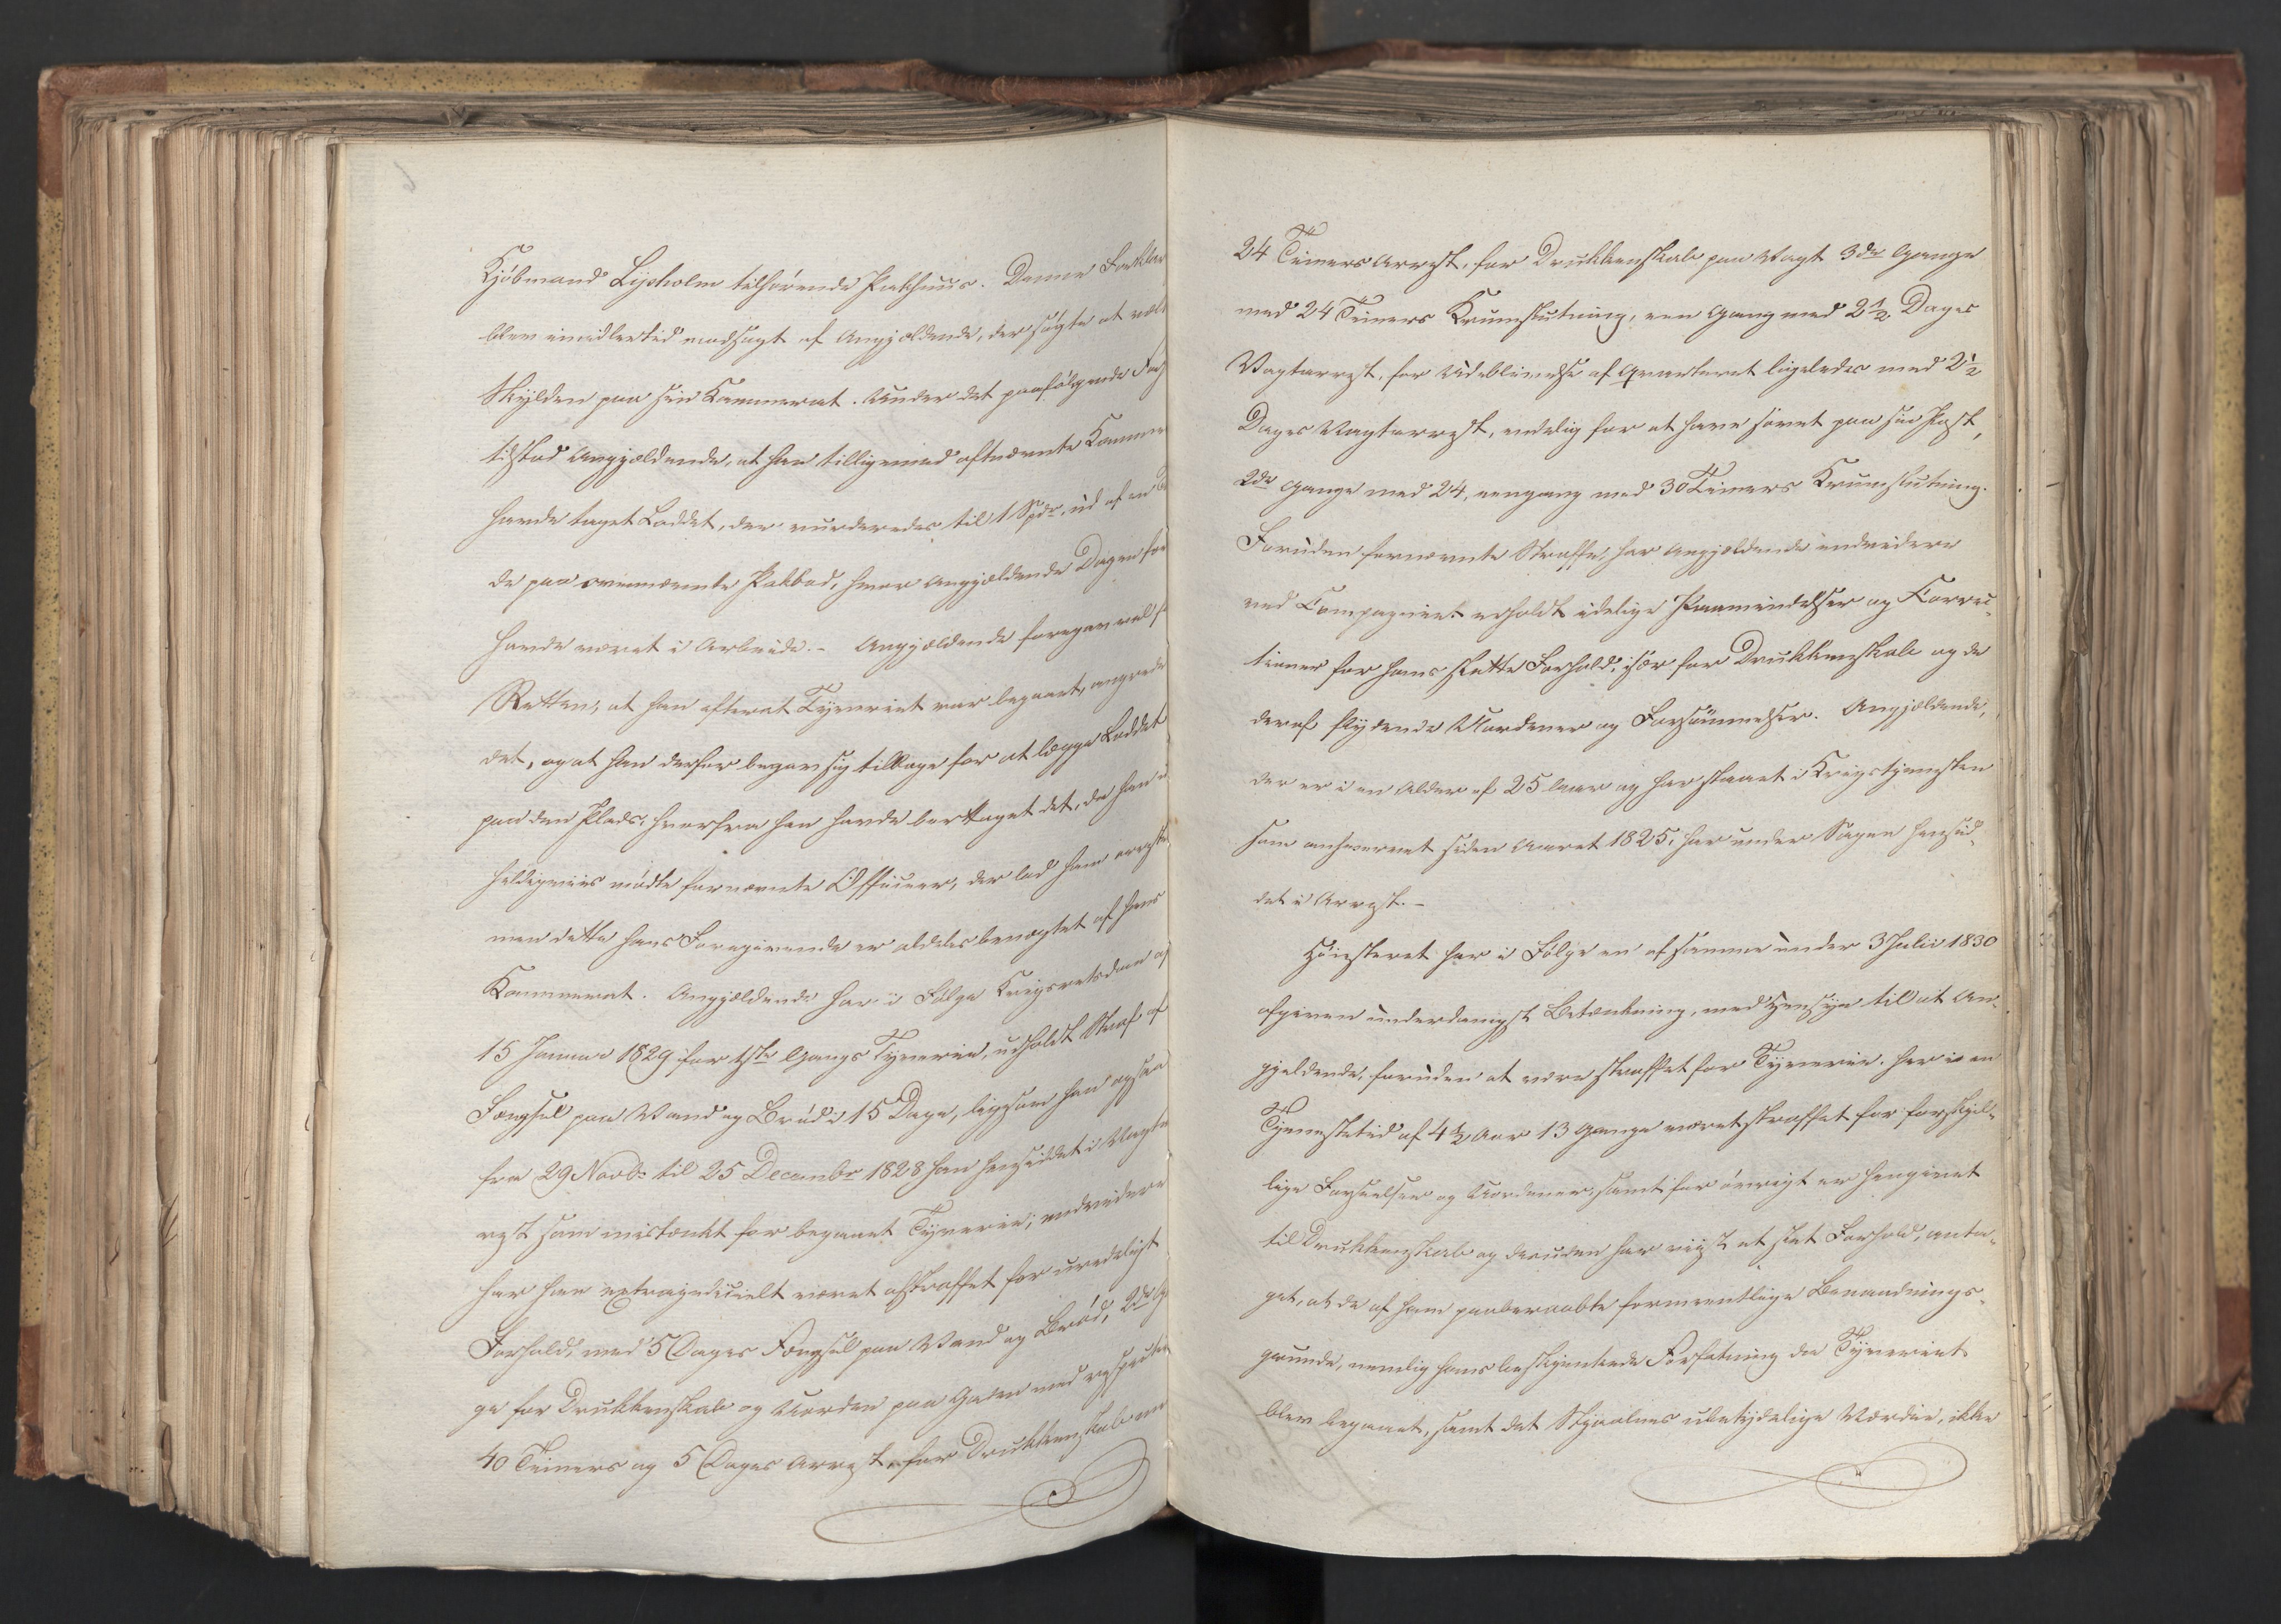 Kjöbmand Lysholm tilhörende Pakhuus. Denne Forklar
blev imidlertid modsagt af Angjældende, der søgte at vælt
Skylden paa sin Kammerat. Under det paafølgende For
tilstod Angjældende, at han tilligemed oftnævnte Kammer
havde taget Loddet, der vurderedes til 1 Spdr, ud af en
de paa ovennævnte Pakbod, hvor Angjældende Dagen for
havde været i Arbeide. - Angjældende foregav vel f
Retten, at han efterat Tyveriet var begaaet, angrede
det, og at han derfor begav sig tilbage for at lægge Loddet
paa den Plads, hvorfra han havde borttaget det, da han u
heldigviis mødte fornævnte Officeer, der lod ham arreste
men dette hans Foregivende er aldeles benægtet af hans
Kammerat. Angjældende har i Følge Krigsretsdom af
15 Januar 1829 for 1ste Gangs Tyverie, udholdt Straf af
Fængsel paa Vand og Brød i 15 Dage, ligesom han ogsaa
fra 29 Novbr til 25 Decembr 1828 har hensiddet i Vagtar
rest som mistænkt for begaaet Tyverie; endvidere
har han extrajudicielt været afstraffet for uredeligt
Forhold, med 5 Dages Fængsel paa Vand og Brød, 2de G
ge for Drukkenskab og Uorden paa Gaden med respective
40 Timers og 5 Dages Arrest, for Drukkenskab
24 Timers Arrest, for Drukkenskab paa Vagt 3de Gange
med 24 Timers Krumslutning, een Gang med 2½ Dages
Vagtarrest, for Udeblivelse af Qvarteret ligeledes med 2½
Dages Vagtarrest, endelig for at have sovet paa sin Post,
2de Gange med 24, eengang med 30 Timers Krumslutning.
Foruden fornævnte Straffe, har Angjældende endvidere
ved Compagniet erholdt idelige Paamindelser og Correc-
tioner for hans slette Forhold, især for Drukkenskab og de
deraf flydende Uordener og Forsømmelser. Angjældende,
der er i en Alder af 25 Aar og har staaet i Krigstjenesten
som anhvervet siden Aaret 1825, har under Sagen hensid-
det i Arrest. -
Höiesteret har i Følge en af samme under 3 Julii 1830
afgiven underdanigst Betænkning, med Hensyn til at An-
gjeldende, foruden at være straffet for Tyverie, har i en
Tjenestetid af 4½ Aar 13 Gange været straffet for forskjel-
lige Forseelser og Uordener, samt for øvrigt er hengivet
til Drukkenskab og desuden har viist et slet Forhold, anta-
get, at de af ham paaberaabte formeentlige Benaadnings-
grunde, nemlig hans beskjænkede Forfatning da Tyveriet
blev begaaet, samt det Stjaalnes ubetydelige Værdie, ikke